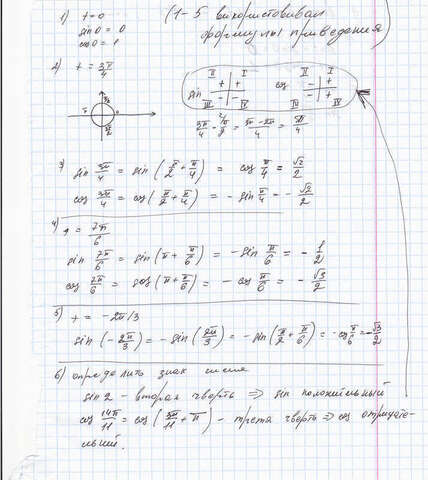 1) t = 0 (1-5 використовивал
sin 0 = 0 формулы приведения)
cos 0 = 1
2) t = 3π/4
sin II I + + - - III IV cos II I - + - + IV
3π/4 - π/2 = 3π-2π/4 = π/4
3) sin 3π/4 = sin (π/2 + π/4) = cos π/4 = √2/2
cos 3π/4 = cos (π/2 + π/4) = - sin π/4 = - √2/2
4) t = 7π/6
sin 7π/6 = sin (π + π/6) = - sin π/6 = - 1/2
cos 7π/6 = cos (π + π/6) = - cos π/6 = - √3/2
5) t = -2π/3
sin (- 2π/3) = - sin (2π/3) = - sin (π/2 + π/6) = - cos π/6 = - √3/2
6) определить знак
sin 2 - вторая чверть ⇒ sin положительный
cos 14π/11 = cos (3π/11 + π) - третя чверть ⇒ cos отрицате-
льный.